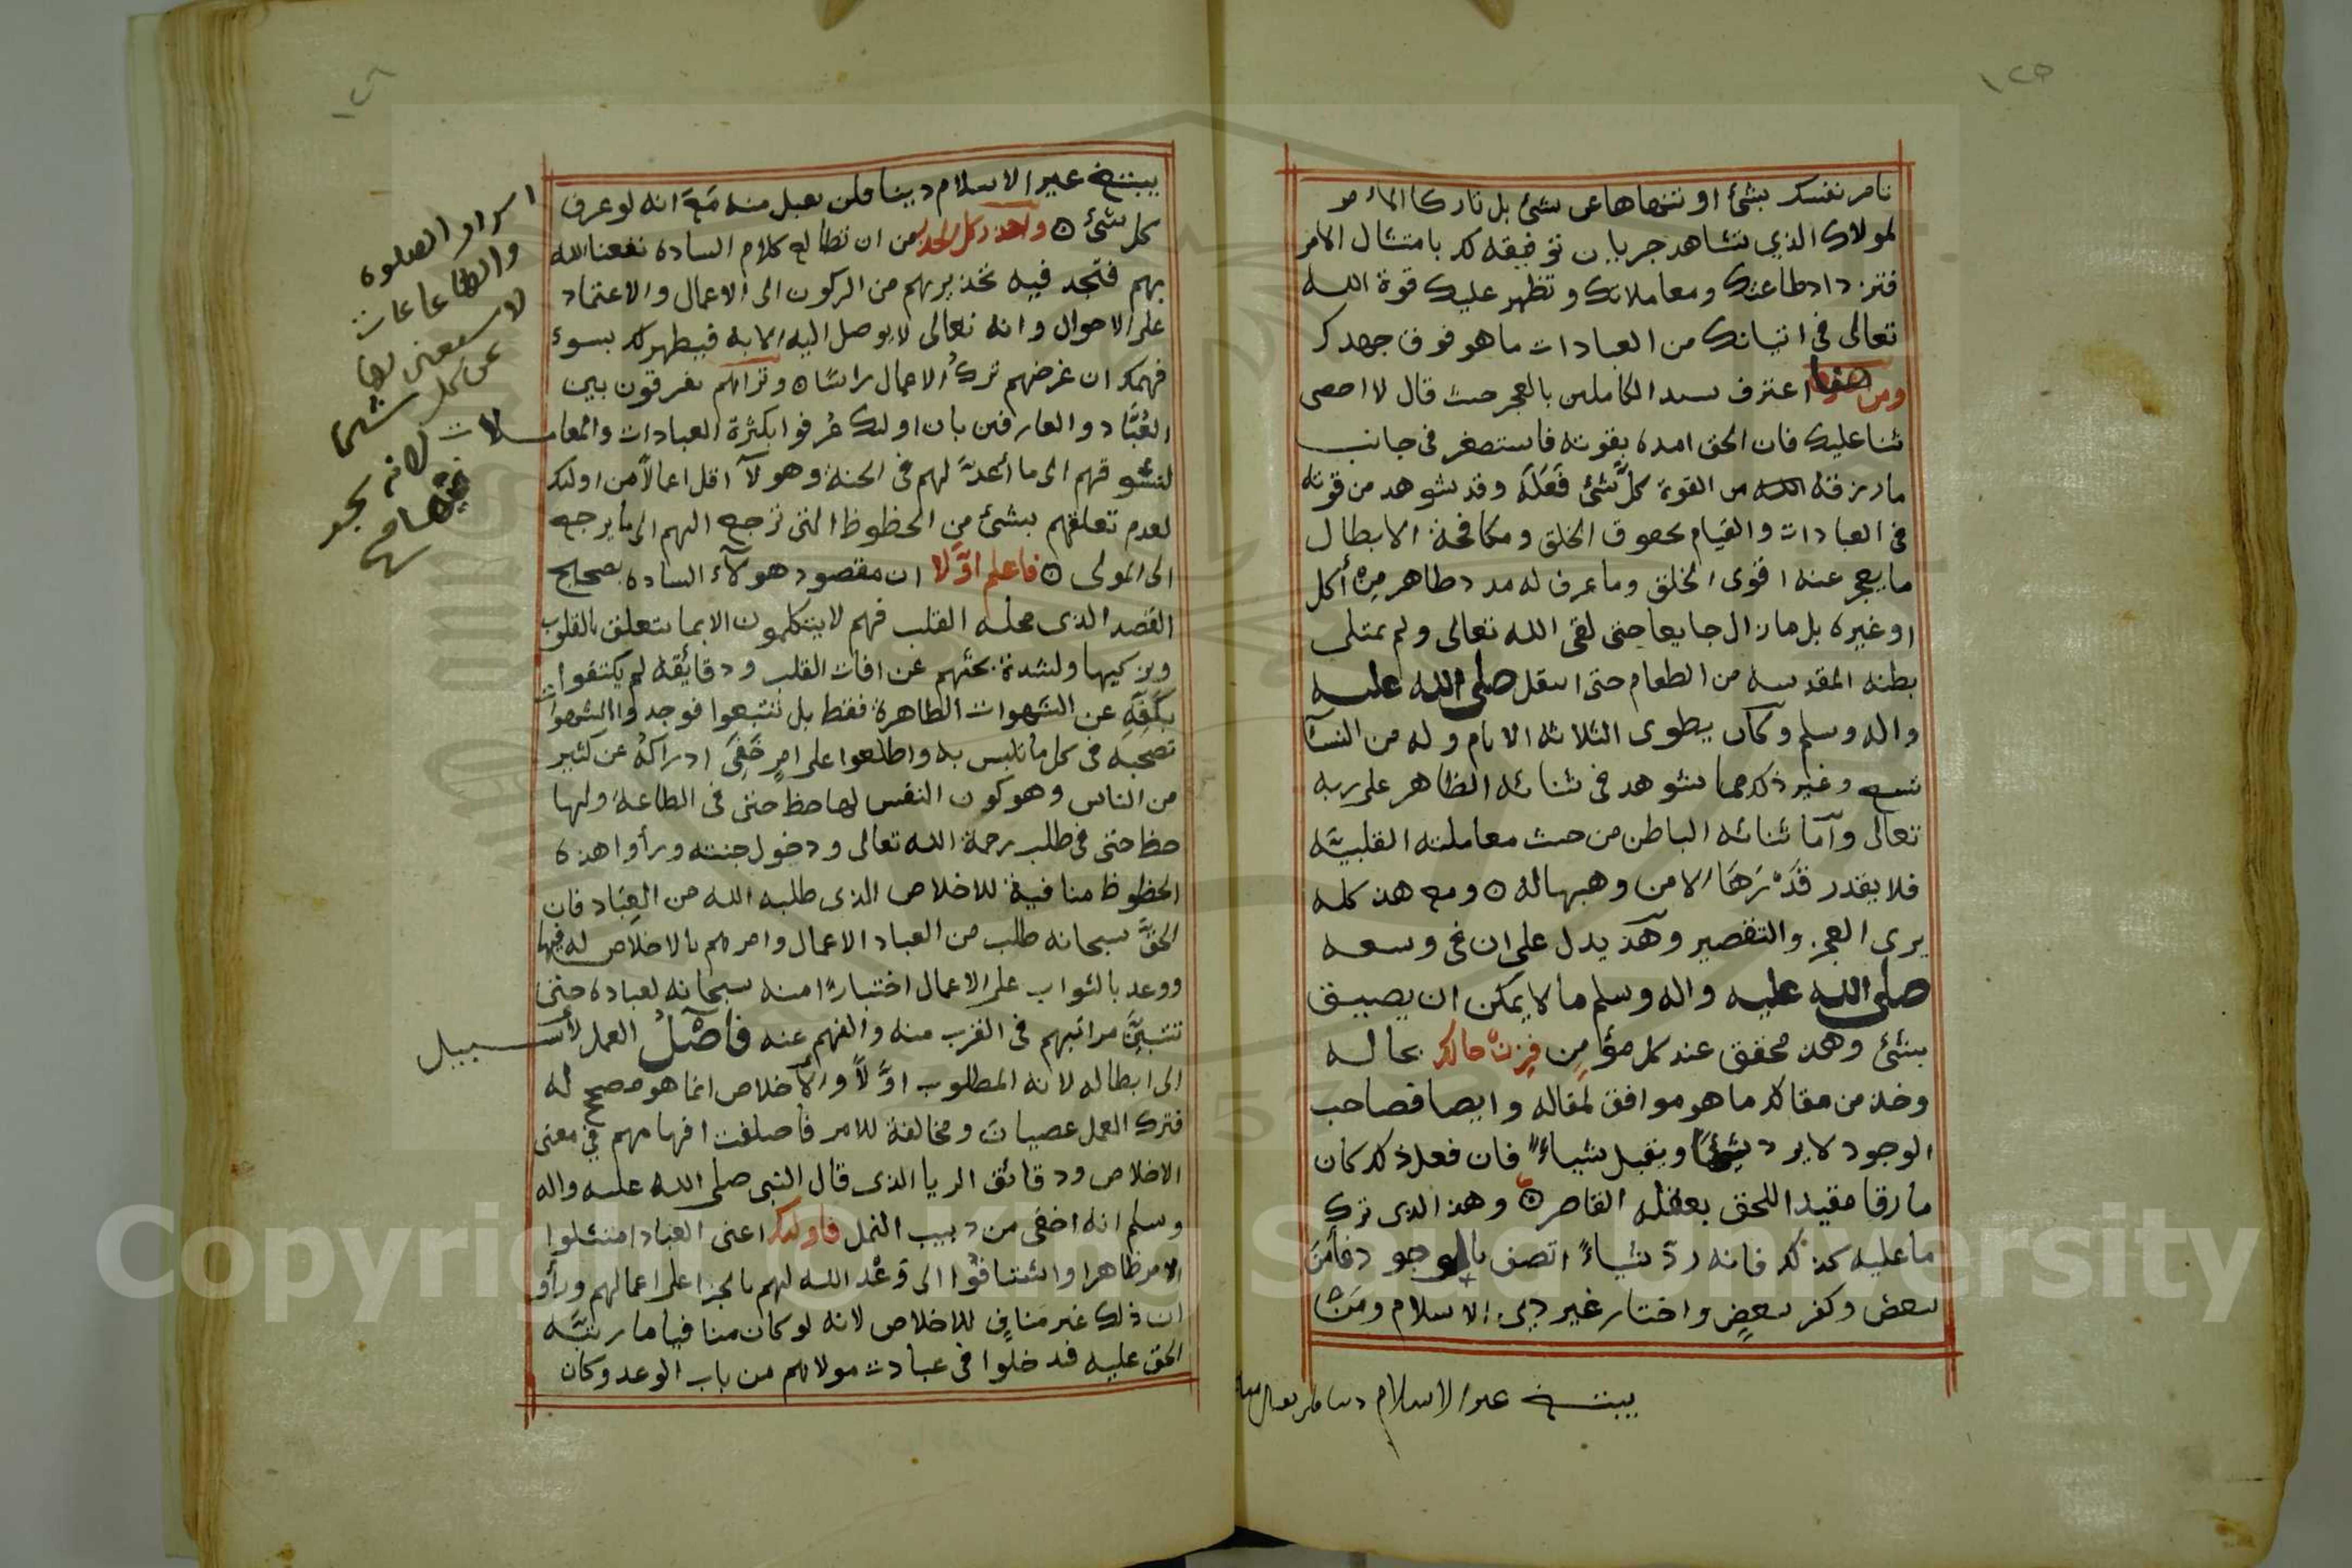 ١٢٥
تامر نفسك بشئ او تنهاها عن شئ بل تاركا الامر
لمولاك الذي تشاهد جريان توفيقه لك بامتثال الامر
فتزداد طاعتك ومعاملاتك وتظهر عليك قوة الله
تعالى في اتيانك من العبادات ما هو فوق جهدك
ومن هنا اعترف سيد الكاملين بالعجز حيث قال لا احصى
ثنا عليك فان الحق امده بقوته فاستصغر في جانب
ما رزقه الله من القوة كل شئ فَعَلَه وقد شوهد من قوته
في العبادات والقيام بحقوق الخلق ومكافحة الابطال
ما يعجز عنه اقوى الخلق وما عرف له مدد ظاهر من أكل
او غيره بل ما زال جايعا حتى لقى الله تعالى ولم يمتلى
بطنه المقدسه من الطعام حتى انتقل صلى الله عليه
واله وسلم وكان يطوى الثلاثه الايام وله من النسآ
تسع وغير ذلك مما شوهد في ثنائه الظاهر على ربه
تعالى وآما ثنائه الباطن من حيث معاملته القلبيّه
فلا يقدر قَدْرَهَا الا من وهبها له ٥ ومع هذ كله
يرى العجز والتقصير وهذ يدل على ان في وسعه
صلى الله عليه واله وسلم ما لا يمكن ان يضيق
بشئ وهذ محقق عند كل مؤمن فزِنْ حالك بحاله
وخذ من مقالك ما هو موافق لمقاله وايضا فصاحب
الوجود لا يرد شيئا ويقبل شياءً فان فعل ذلك كان
مارقا مقيدا للحق بعقله القاصر ٥ وهذ الذي ترك
ما عليه كذلك فانه ردّ شياءً اتصف بالوجود فأمَنَ
ببعض وكفر ببعضٍ واختار غير دين الاسلام ومَنْ
يبتغ غير الاسلام دينا فلن يقبل منه
يبتغ غير الاسلام دينا فلن يقبل منه مَعَ انه لو عرف
كل شئ ٥ واحذر كل الحذر من ان تطالع كلام الساده نفعنا الله
بهم فتجد فيه تحذيرهم من الركون الى الاعمال والاعتماد
على الاحوال وانه تعالى لا يوصل اليه الا به فيظهر لك بسوء
فهمك ان غرضهم تركُ الاعمال راسًا ٥ وتراهم يفرقون بين
العُبَّاد والعارفين بان اولئك عُرفوا بكثرة العبادات والمعاملات
لتشوقهم الى ما أعدّ لهم في الجنة وهولآ اقل اعمالاً من اولئك
لعدم تعلقهم بشئ من الحظوظ التي ترجع اليهم الى ما يرجع
الى المولى ٥ فاعلم اوّلا ان مقصود هولآء الساده تصحيح
القصد الذي محله القلب فهم لا يتكلمون الا بما يتعلق بالقلوب
ويزكيها ولشدة بحثهم عن افات القلب ودقايقه لم يكتفوا
بكفه عن الشهوات الظاهرة فقط بل تتبعوا فوجدوا الشهوات
تصحبه في كل ما تلبس به واطلعوا على امرٍ خَفِيَ ادراكهُ عن كثير
من الناس وهو كون النفس لها حظ حتى في الطاعة ولها
حظ حتى في طلب رحمة الله تعالى ودخول جنته ورأوا هذه
الحظوظ منافية للاخلاص الذي طلبه الله من العِبَاد فان
الحقَّ سبحانه طلب من العباد الاعمال وامرهم بالاخلاص له فيها
ووعد بالثواب على الاعمال اختبارًا منه سبحانه لعباده حتى
تتبيّن مراتبهم في القرب منه والفهم عنه فأصْلُ العمل لا سبيل
الى ابطاله لانه المطلوب اوّلاً والاخلاص انما هو مصحح له
فترك العمل عصيان ومخالفة للامر فاختلفت افهامهم في معنى
الاخلاص ودقائق الريا الذي قال النبي صلى الله عليه واله
وسلم انه اخفى من دبيب النمل فاولئك اعنى العباد امتثلوا
الامر ظاهرا واشتاقُوا الى وَعْد الله لهم بالجزا على اعمالهم ورأو
ان ذلك غير مَنافٍ للاخلاص لانه لو كان منافيا ما رتبّه
الحق عليه فدخلوا في عبادت مولاهم من باب الوعد وكان
اسرار الصلوه
والطاعات
لا يستغنى بها
عن كل شئ
لانه يجد
Copyright © King Saud University
1957